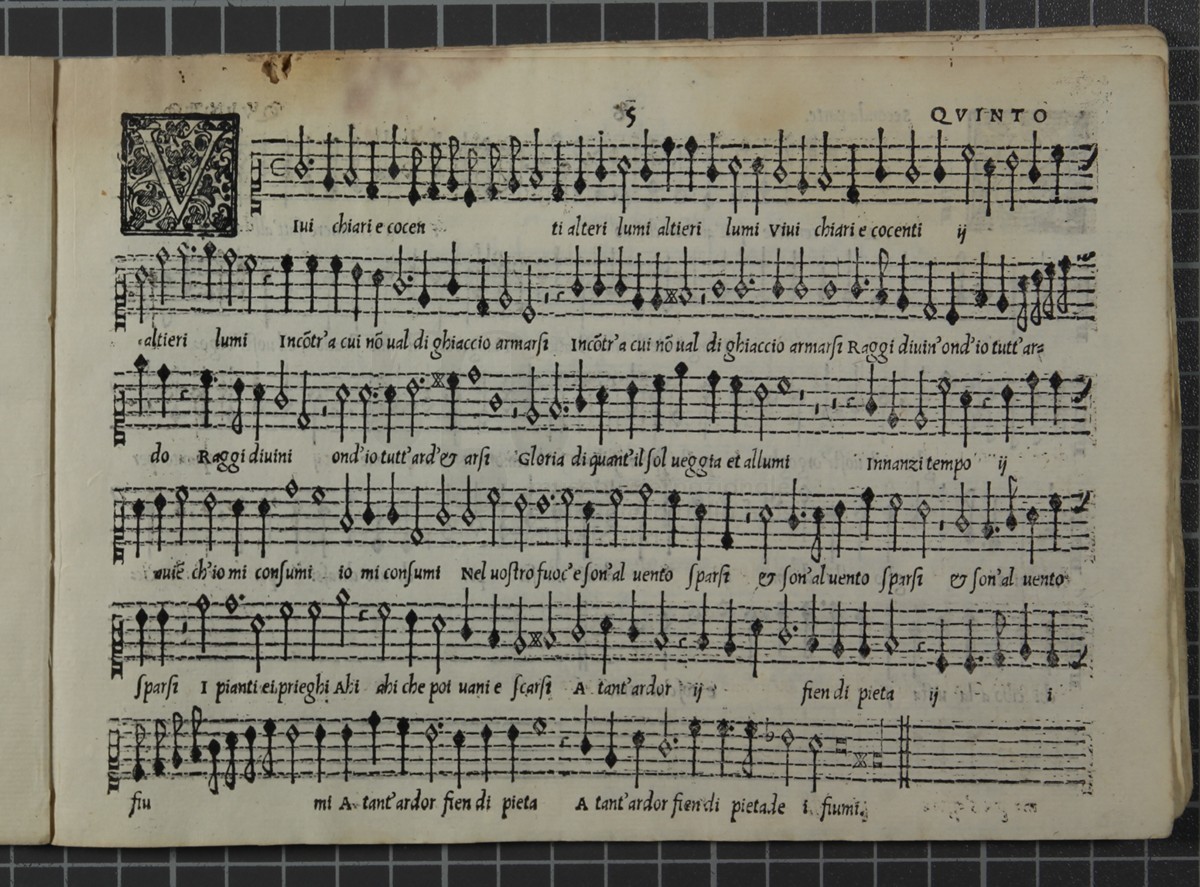 5 QVINTO
VIui chiari e cocen ti alteri lumi altieri lumi Viui chiari e cocenti ij
altieri lumi Incõtr'a cui nõ ual di ghiaccio armarsi Incõtr'a cui nõ ual di ghiaccio armarsi Raggi diuin'ond'io tutt'ar=
do Raggi diuini ond'io tutt'ard'& arsi Gloria di quant'il sol ueggia et allumi Innanzi tempo ij
auiẽ ch'io mi consumi io mi consumi Nel uostro fuoc'e son'al uento sparsi & son'al uento sparsi & son'al uento
sparsi I pianti ei prieghi Ahi ahi che poi uani e scarsi A tant'ardor ij fien di pieta ij i
fiu mi A tant'ardor fien di pieta A tant'ardor fien di pieta.de i fiumi.